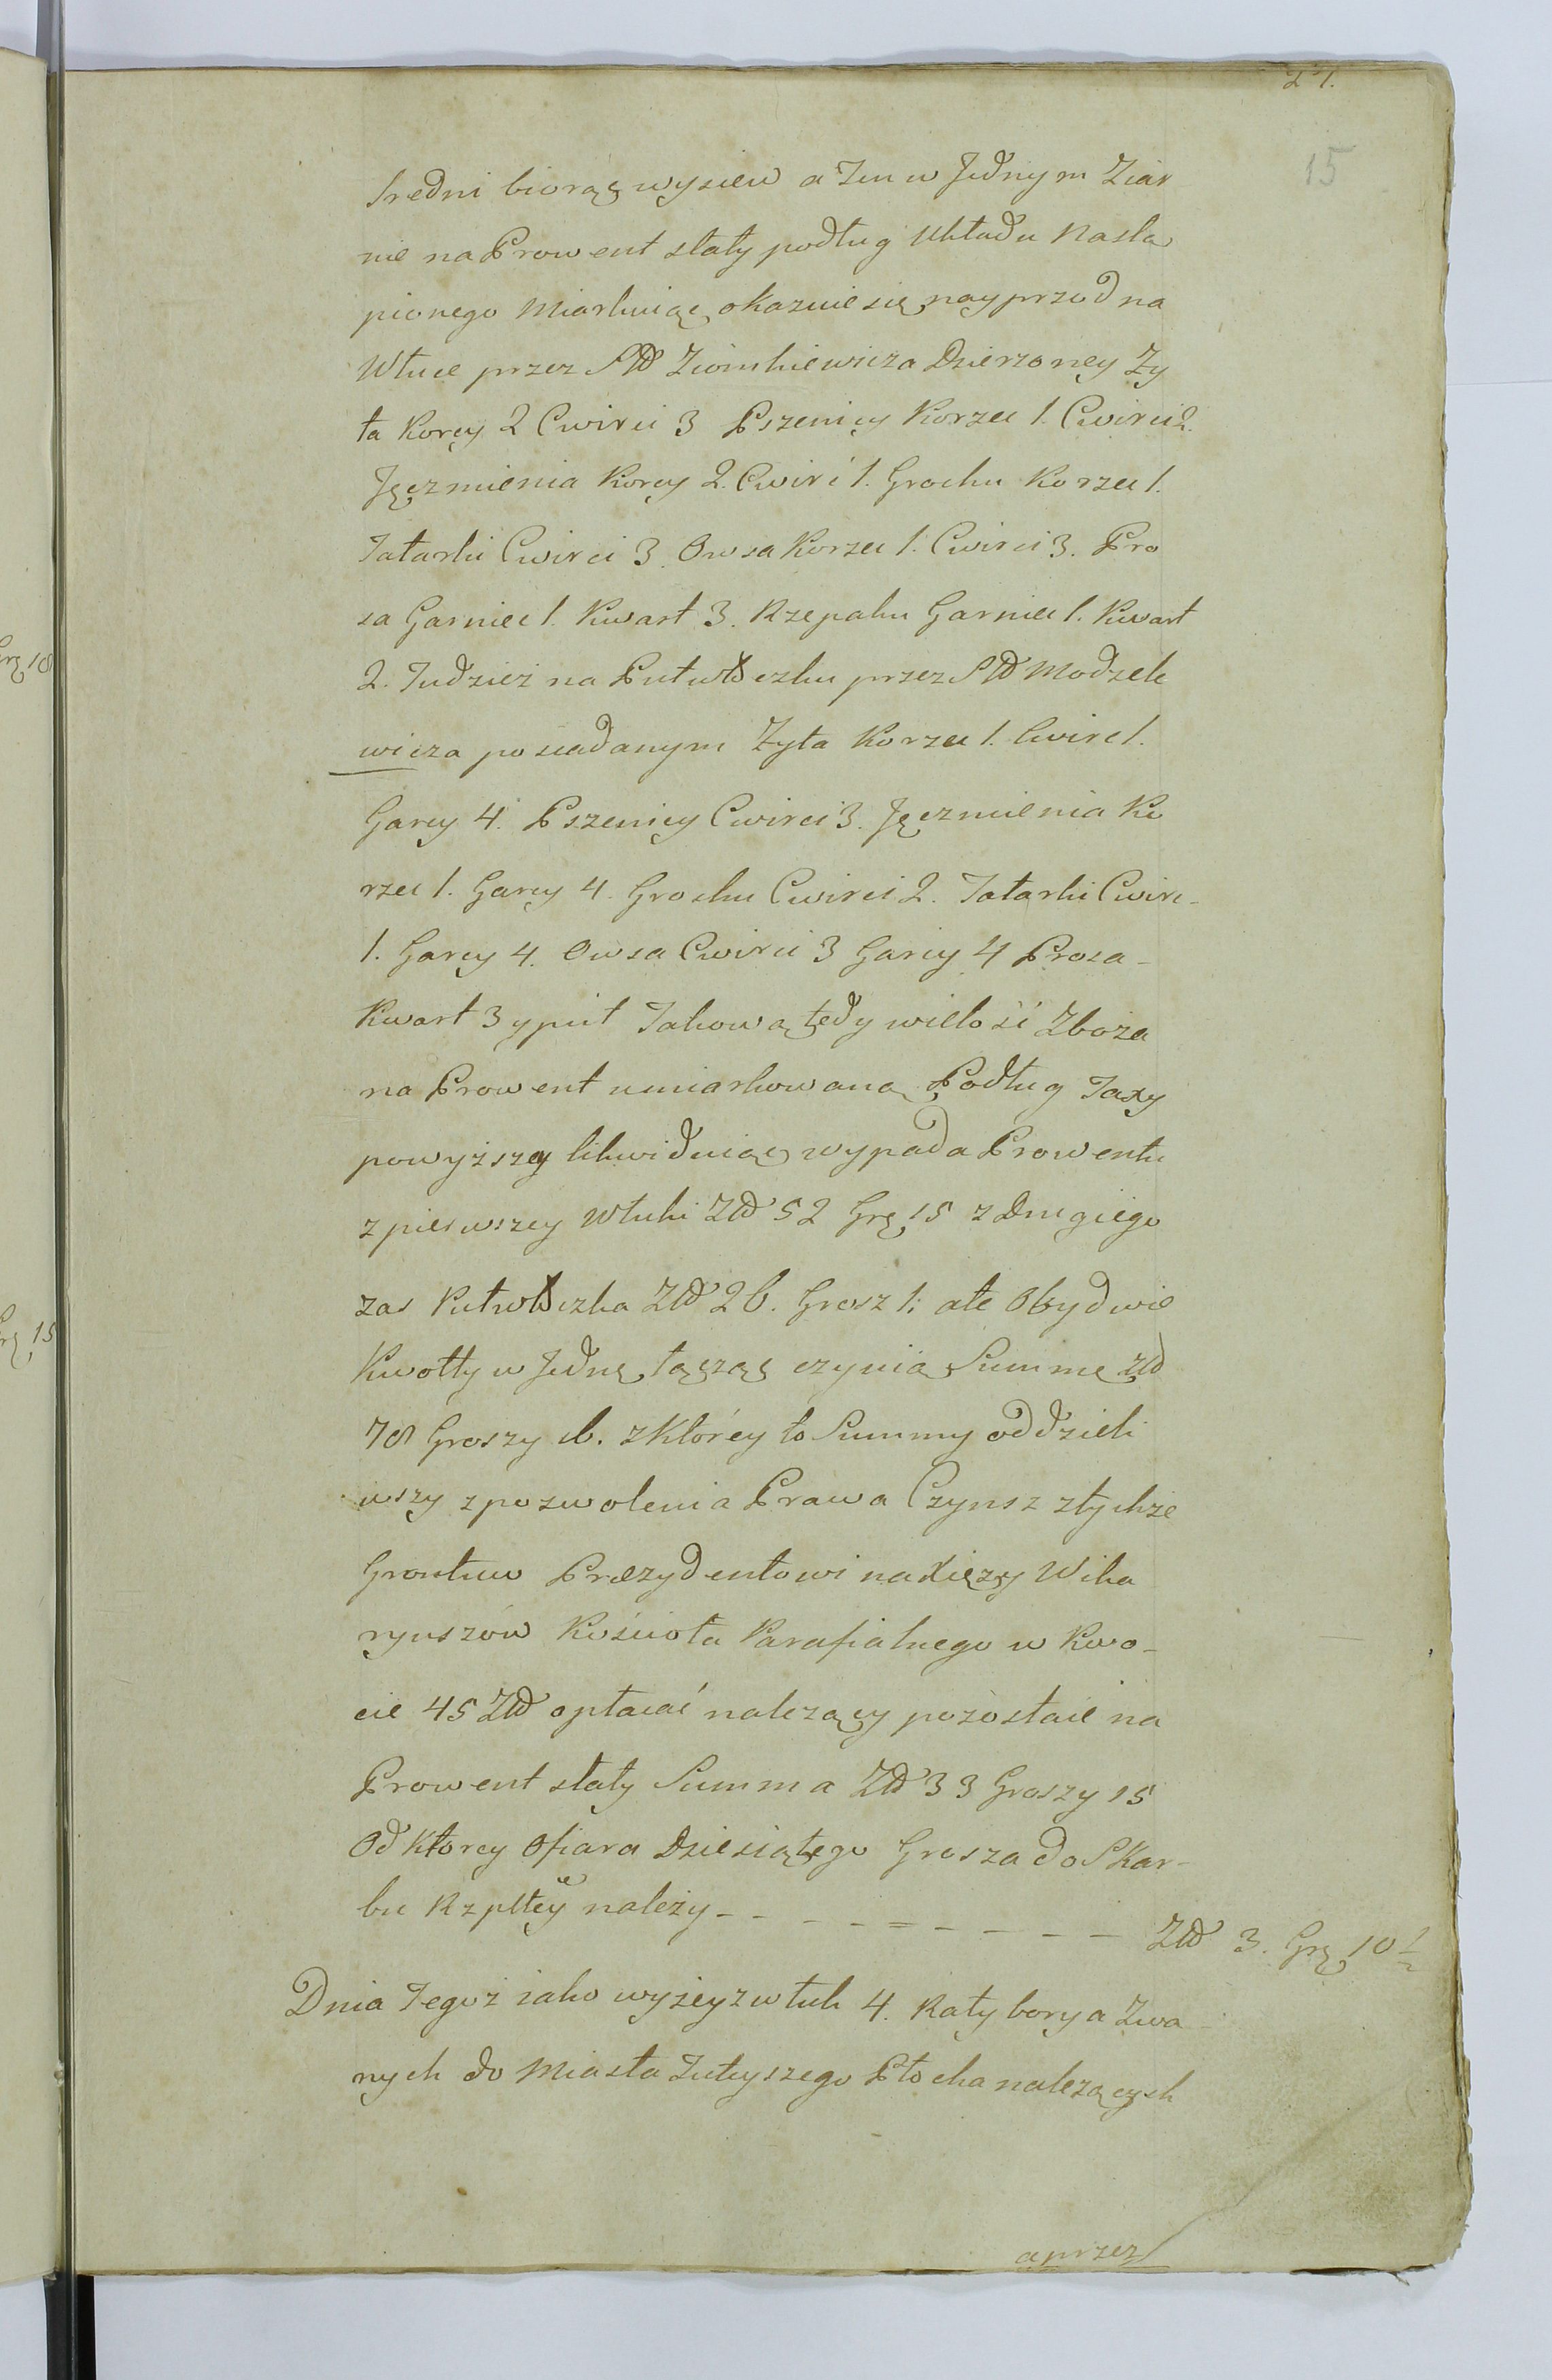 27.
15
Sredni biorąc wysiew a Ten w Jednym Ziar
nie na Prowent stały podług Układu Nastą
pionego Miarkuiąc, okazuie się nayprzod na
Włuce przez SP Ziomkiewicza Dzierzoney Zy
ta Korcy 2 Cwirci 3 Pszenicy Korzec 1. Cwirci 2.
Jęczmienia Korcy 2. Cwirć 1. Grochu Korzec 1.
Tatarki Cwirci 3. Owsa Korzec 1. Cwirci 3. Pro
sa Garniec 1. Kwart 3. Rzepaku Garniec 1. Kwart
2. Tudzież na Pułwłoczku przez SP Modzele
wicza posiadanym Zyta Korzec 1. Cwirc 1.
Garcy 4. Pszenicy Cwirci 3. Jęczmienia Ko
rzec 1. Garcy 4. Grochu Cwirci 2. Tatarki Cwirc-
1. Garcy 4. Owsa Cwirci 3 Garcy 4 Prosa-
Kwart 3 y puł Takową tedy wielość Zboza
na Prowent umiarkowaną Podług Taxy
powyższey likwiduiąc wypada Prowentu
z pierwszey Włuki Zł 52 Gr 15 z Drugiego
zas Pułwłoczka Zł 26. Grosz 1: ale Obydwie
Kwotty w Jednę łącząc czynią Summę Zł
78 Groszy 16. z Którey to Summy oddzieli
wszy z pozwolenia Prawa Czynsz z tychże
Grontuw Prezydentowi na Xięzy Wika
ryuszów Kościoła Parafialnego w Kwo-
cie 45 Zł opłacać nalezący pozostaie na
Prowent stały Summa Zł 33 Groszy 15
Od Ktorey Ofiara Dziesiątego Grosza do Skar-
bu Rzpltey należy - - - - = - - - - Zł 3. Gr 10 ½
Dnia Tegoż iako wyżey z włuk 4. Ratyborya Zwa
nych do Miasta Tuteyszego Płocka nalezących
a przez
Gr 18
Gr 15